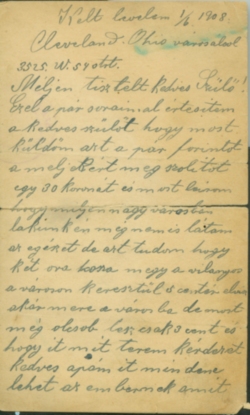 Kelt levelem 1/6 1908.
Cleveland. Ohio városábol
3525. W. 54 stret.
Méljen tisztelt kedves Szülő!
Ezel a pár soraimal értesitem
a kedves szülőt hogy most
küldom azt a pár forintot
a meljekért meg szolitot
egy 30 koronát és most leirom
hogy milyen nagy városban
lakunk én meg nem is látam
az egészet de azt tudom hogy
két ora hosza megy a vilanyos
a varoson keresztül 5 centér
akár mere a városba de most
még olcsob lesz csak 3 cent és
hogy it mit terem kérdezst
kedves apám it minden
lehet az embernek amit